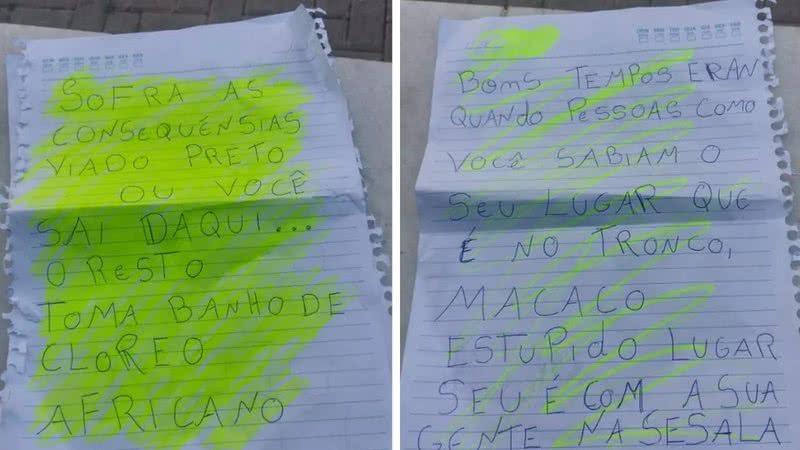 SOFRA AS
CONSEQUÊNSIAS
VIADO PRETO
OU VOCÊ
SAI DAQUI...
O RESTO
TOMA BANHO DE
CLOREO
AFRICANO
BOMS TEMPOS ERAN
QUANDO PESSOAS COMO
VOCÊ SABIAM O
SEU LUGAR QUE
É NO TRONCO,
MACACO
ESTUPIDO LUGAR
SEU É COM A SUA
GENTE NA SESALA